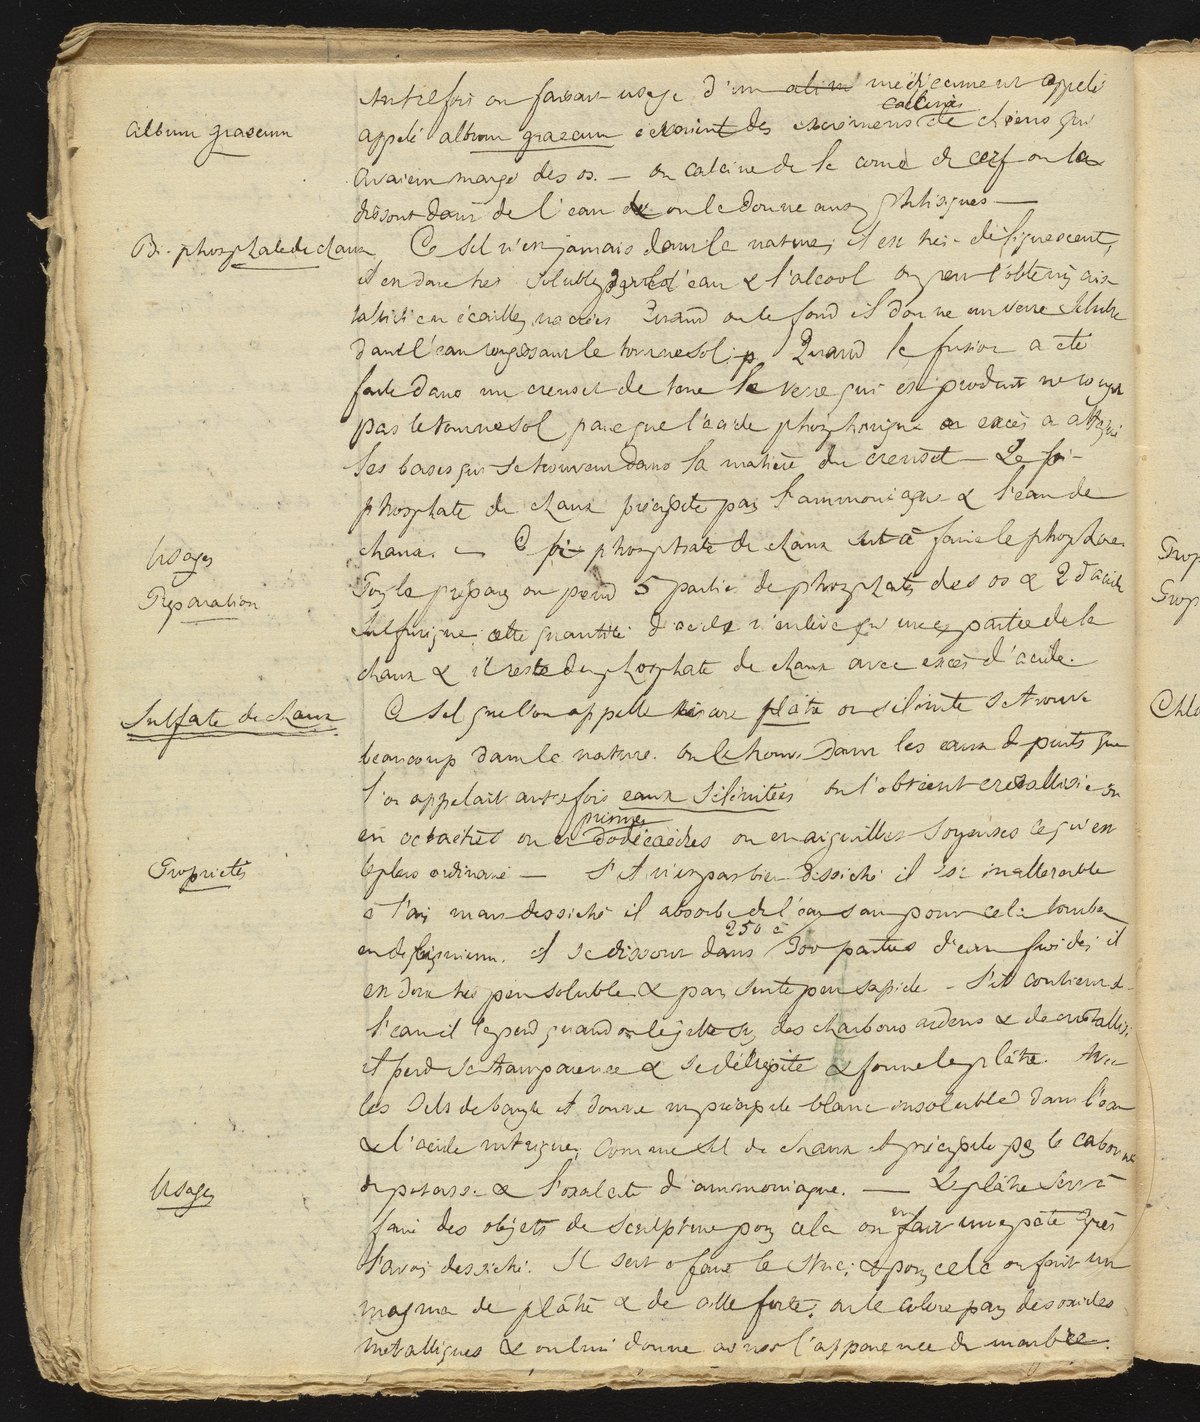 Autrefois on faisait usage d'un alim médicament appelé
calcinés
Album graecum
appelé album graecum c'étaient des excrémens de chiens qui
avaient mangé des os. — on calcine de la corne de cerf on la
dissout dans de l'eau de on le donne aux phtisiques —
Bi-phosphate de chaux
Ce sel n'est jamais dans la nature; il est très-déliquescent,
il est donc très soluble dans l'eau & l'alcool on peut l'obtenir cris-
tallisé en écailles nacrées Quand on le fond il donne un verre soluble
dans l'eau rougissant le tournesol; p Quand la fusion a été
faite dans un creuset de terre le verre qui est produit ne rougit
pas le tournesol parce que l'acide phosphorique en excès a attaqué
les bases qui se trouvent dans la matière du creuset — Le bi-
phosphate de chaux précipite par l'ammoniaque & l'eau de
Usages
chaux. — Ce bi-phosphate de chaux sert à faire le phosphore
Préparation
Pour le préparer on prend 5 parties de phosphate des os & 2 d'acide
sulfurique cette quantité d'acide n'enlève qu'une partie de la
chaux & il reste du phosphate de chaux avec excès d'acide.
Sulfate de chaux
Ce sel que l'on appelle encore plâtre ou sélénite se trouve
beaucoup dans la nature. on le trouve dans les eaux de puits que
l'on appelait autrefois eaux séléniteuses on l'obtient cristallisé en
prismes
en octaèdres ou en dodécaèdres ou en aiguilles soyeuses ce qu'est
Propriétés
le plus ordinaire — S'il n'est pas bien desséché il est inaltérable
à l'air mais desséché il absorbe de l'eau sans pour cela tomber
250 à
en déliquium. il se dissout dans 300 parties d'eau froide; il
est donc très peu soluble & par suite peu sapide — S'il contient de
l'eau il la perd quand on le jette sur des charbons ardens & de cristallisé
il perd sa transparence & se délite & forme le plâtre. Avec
les sels de baryte il donne un précipité blanc insoluble dans l'eau
& l'acide nitrique; comme sel de chaux il précipite par le carbonate
Usages
de potasse & l'oxalate d'ammoniaque. — Le plâtre sert à
faire des objets de sculpture pour cela on en fait une pâte après
l'avoir desséché. Il sert à faire le stuc; & pour cela on fait un
magma de plâtre & de colle forte, on le colore par des oxides
métalliques & on lui donne ainsi l'apparence de marbre.
Prop
Prop
Chlo